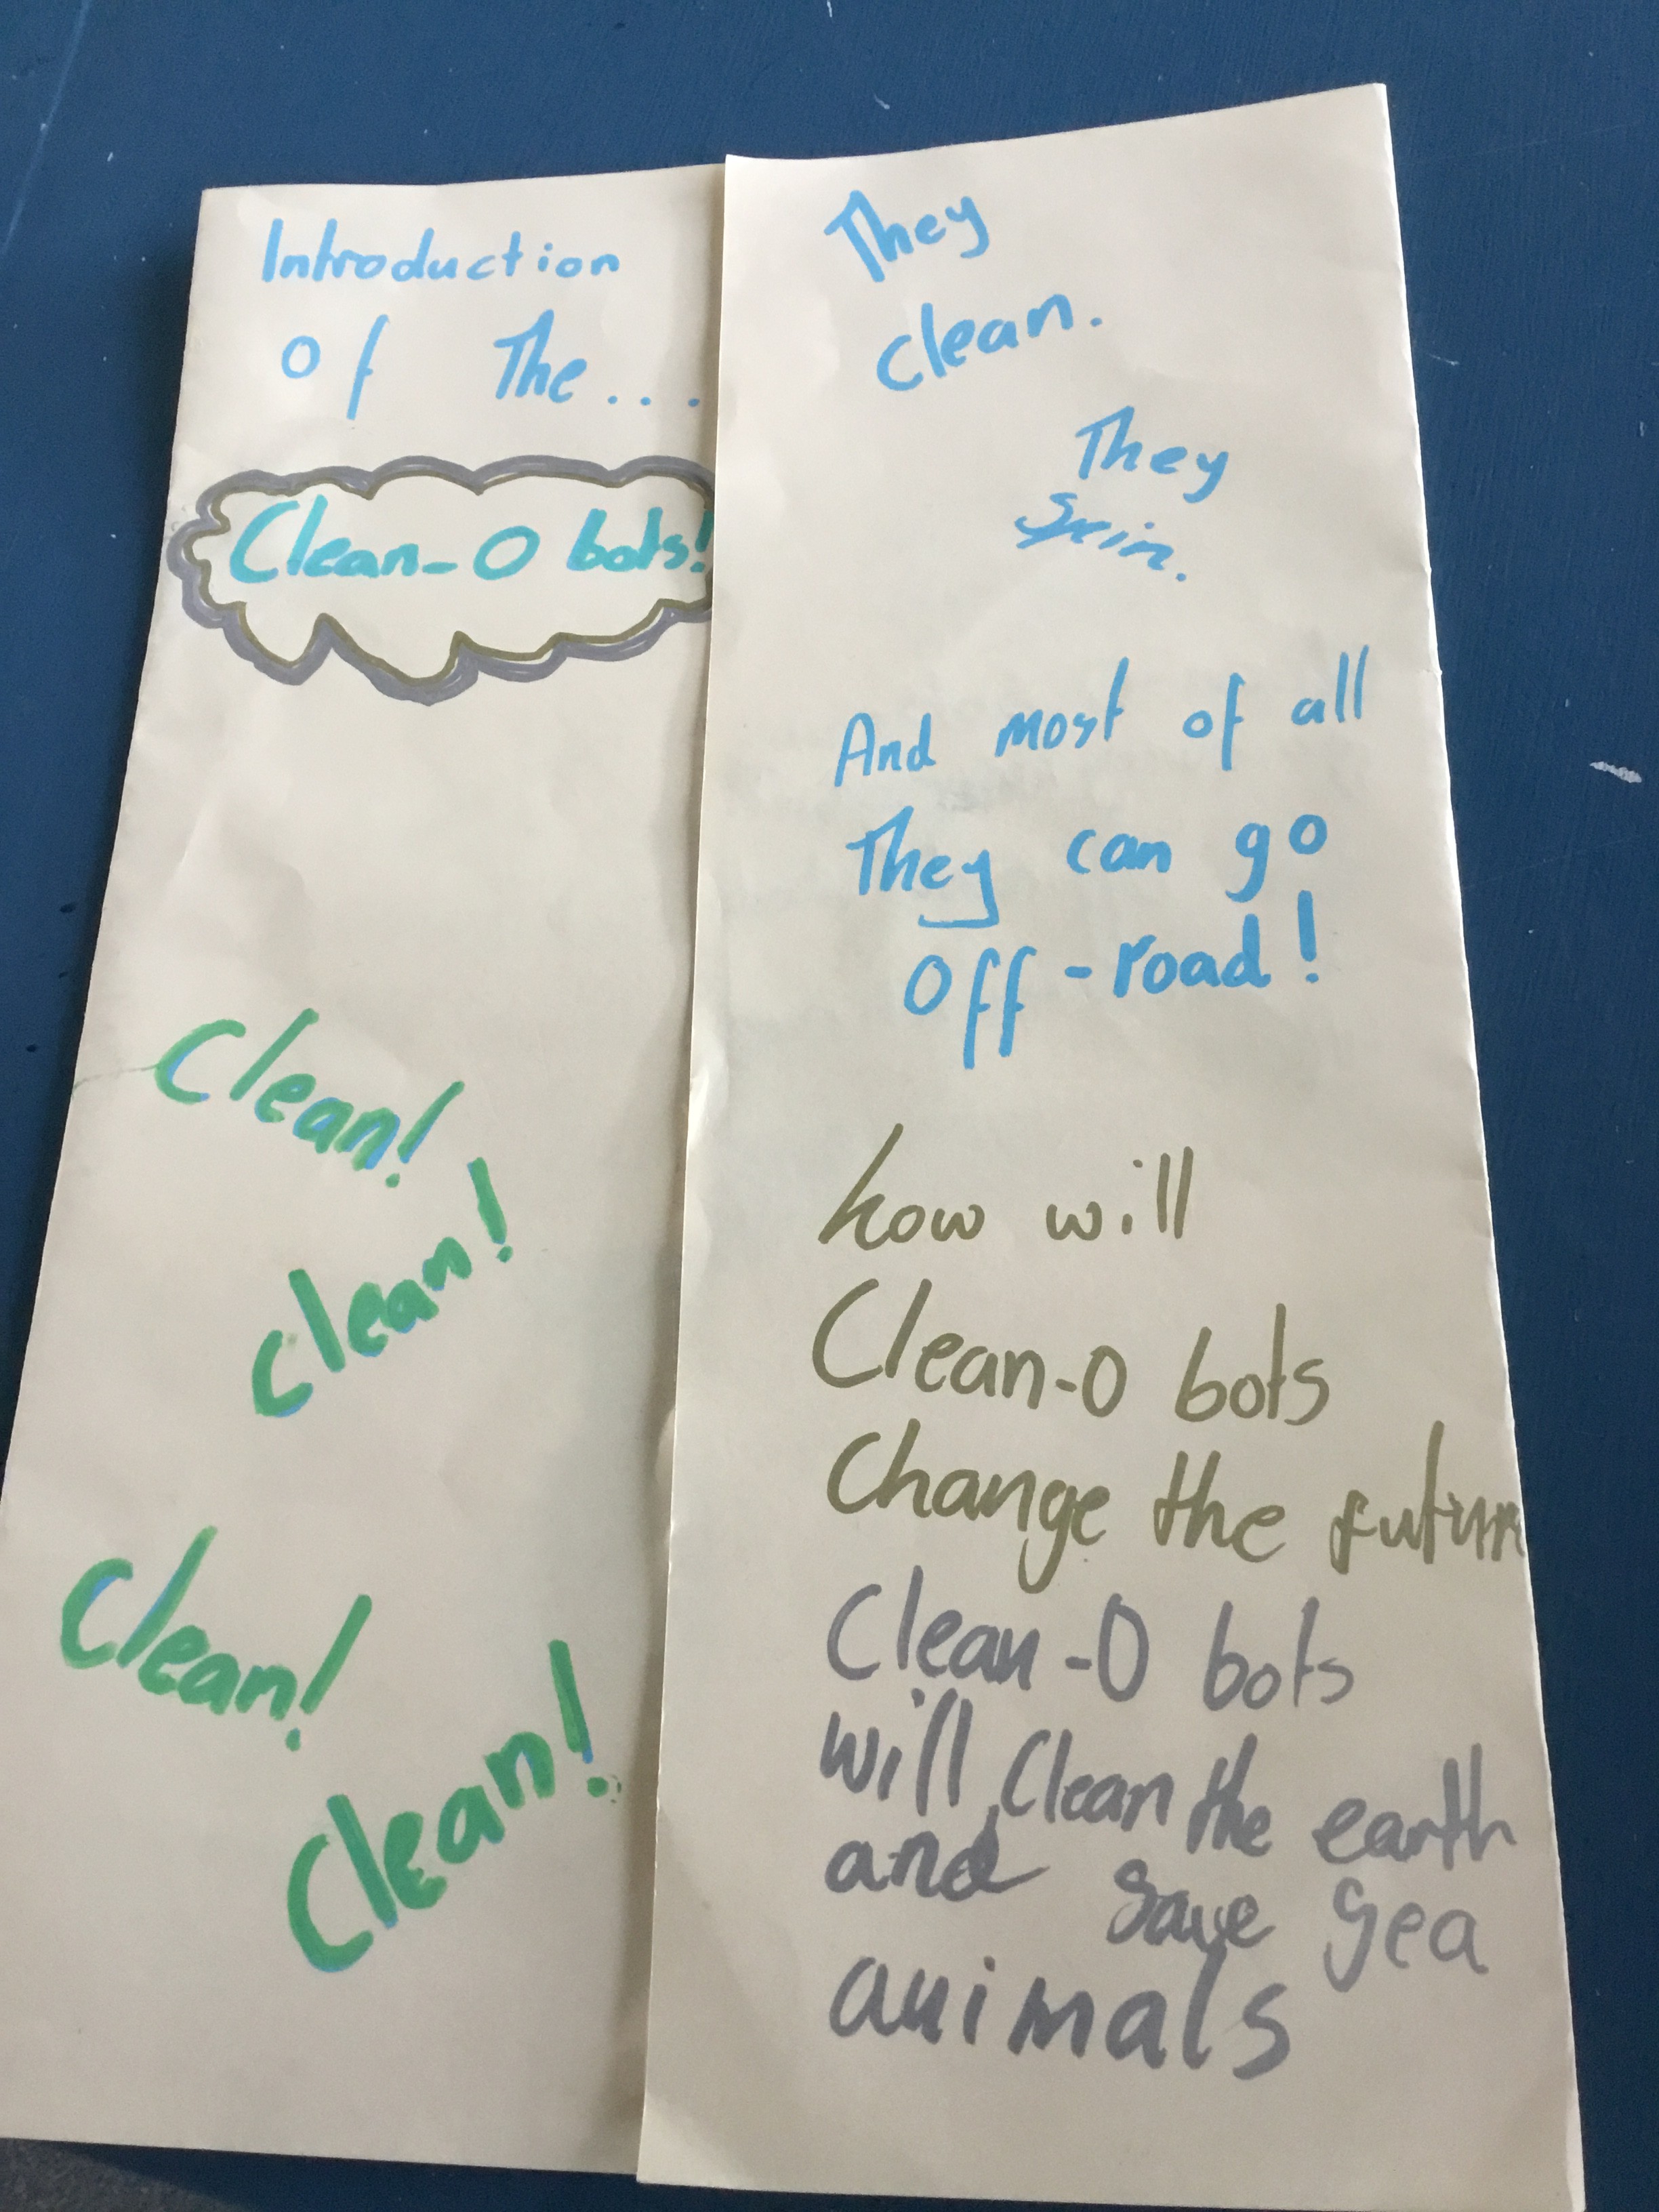 Introduction
of The...
Clean-O bots!
Clean!
clean!
Clean!
Clean!
They
clean.
They
Spin.
And most of all
They can go
off-road!
how will
Clean-O bots
Change the future
Clean-O bots
will Clean the earth
and save sea
animals